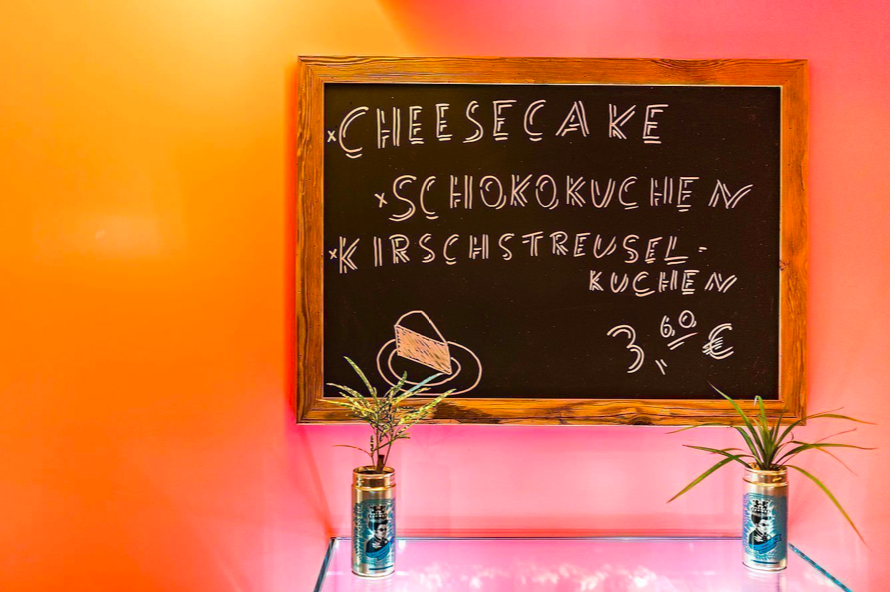 xCHEESECAKE
xSCHOKOKUCHEN
xKIRSCHSTREUSEL-
KUCHEN
3,60 €